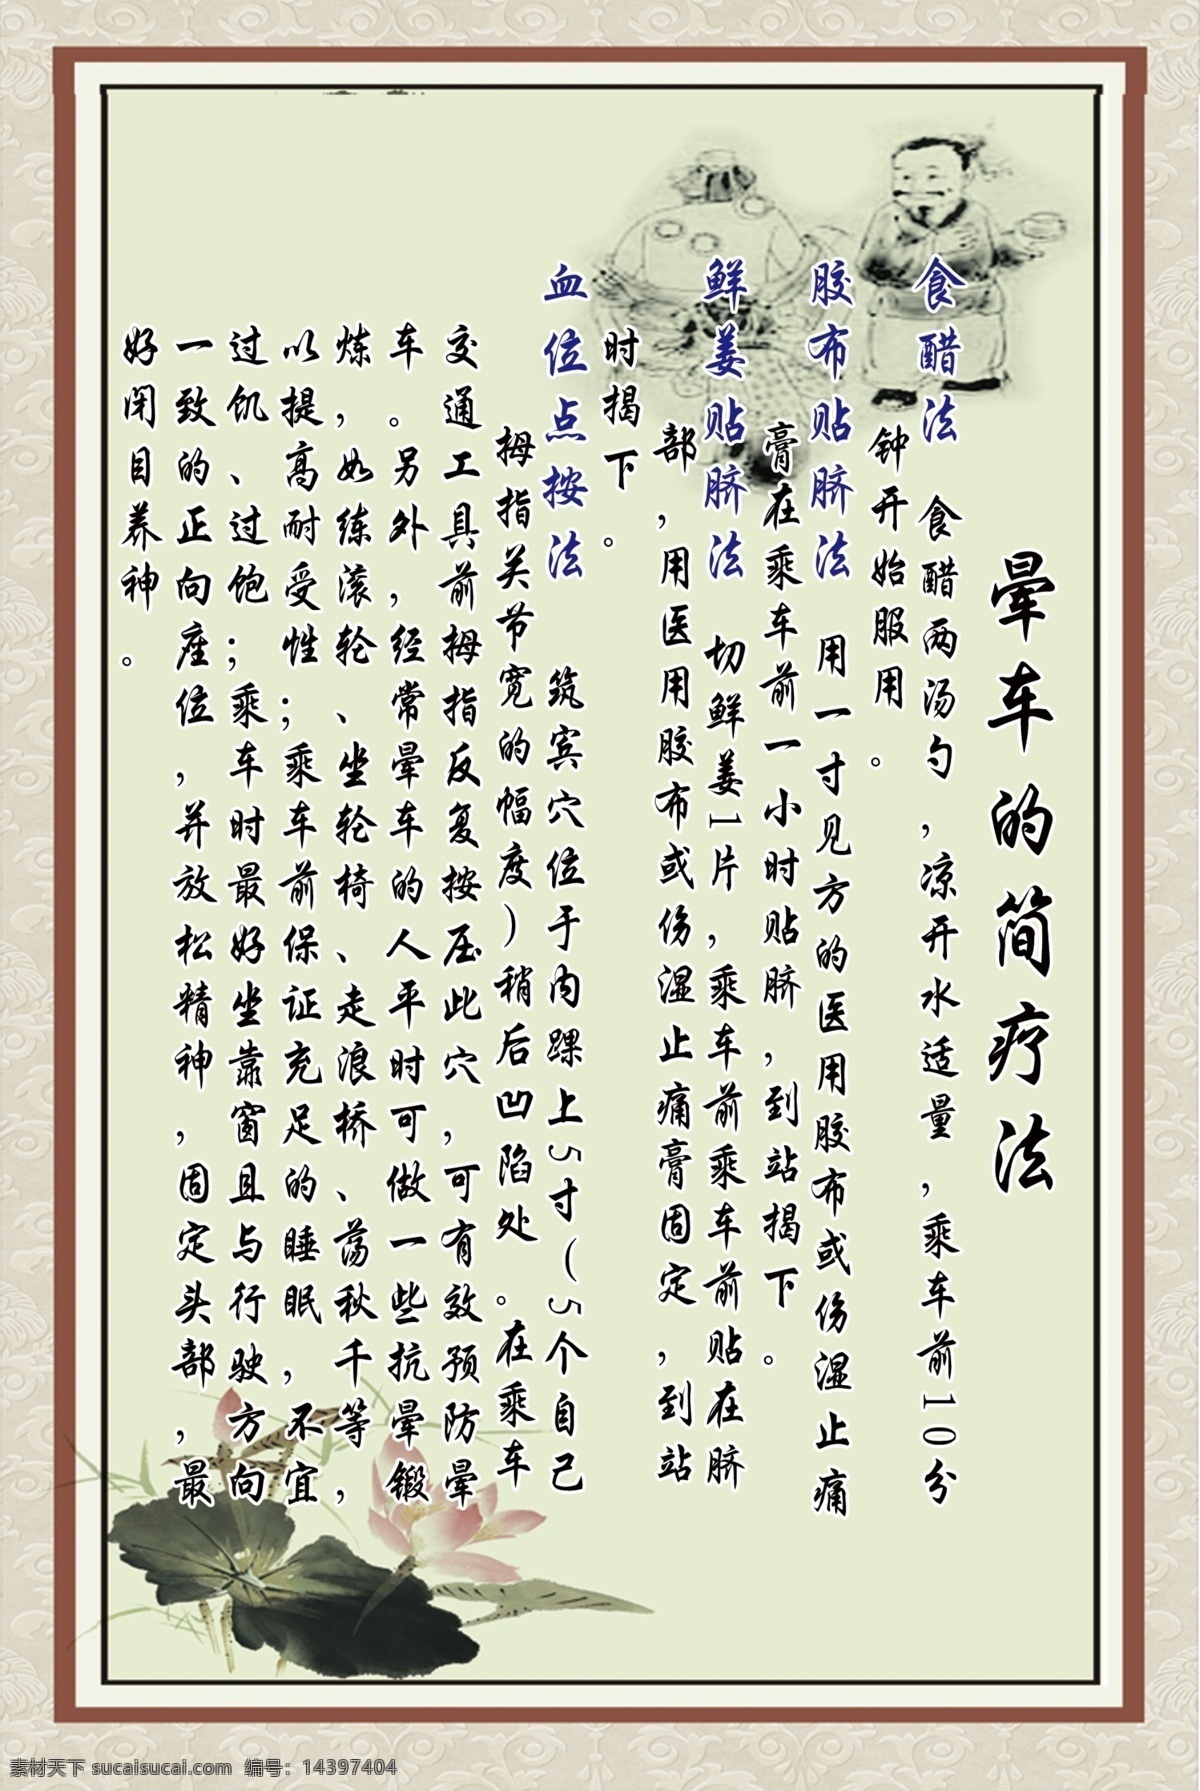 晕车的简疗法
食醋法 食醋两汤勺，凉开水适量，乘车前10分
钟开始服用。
胶布贴脐法 用一寸见方的医用胶布或伤湿止痛
膏在乘车前一小时贴脐，到站揭下。
鲜姜贴脐法 切鲜姜1片，乘车前乘车前贴在脐
部，用医用胶布或伤湿止痛膏固定，到站
时揭下。
血位点按法 筑宾穴位于内踝上5寸（5个自己
拇指关节宽的幅度）稍后凹陷处。在乘车
交通工具前拇指反复按压此穴，可有效预防晕
车。另外，经常晕车的人平时可做一些抗晕锻
炼，如练滚轮、坐轮椅、走浪桥、荡秋千等，
以提高耐受性；乘车前保证充足的睡眠，不宜
过饥、过饱；乘车时最好坐靠窗且与行驶方向
一致的正向座位，并放松精神，固定头部，最
好闭目养神。
素材天下 sucaisucai.com 编号：14397404